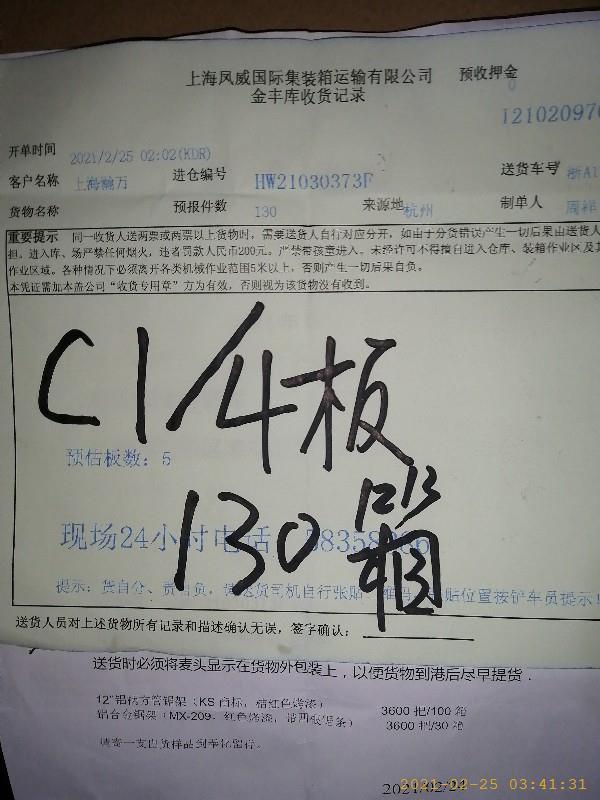 上海凤威国际集装箱运输有限公司 预收押金
0
金丰库收货记录
I2102097
开单时间 2021/2/25 02:02(KDR)
客户名称 上海瀚万 进仓编号 HW21030373F 送货车号 浙A1
货物名称 预报件数 130 来源地 杭州 制单人 周祥
重要提示 同一收货人送两票或两票以上货物时，需要送货人自行对应分开，如由于分货错误产生一切后果由送货人
担。进入库、场严禁任何烟火，违者罚款人民币200元。严禁带孩童进入。未经许可不得擅自进入仓库、装箱作业区及其
作业区域。各种情况下必须离开各类机械作业范围5米以上，否则产生一切后果自负。
本凭证需加本盖公司“收货专用章”方为有效，否则视为该货物没有收到。
C1/4板
预估板数：5
130箱
现场24小时电话 58358
提示：货自分、责自负，请送货司机自行张贴 贴位置按铲车员提示！
送货人员对上述货物所有记录和描述确认无误，签字确认：
送货时必须将麦头显示在货物外包装上，以便货物到港后尽早提货．
12"铝 方管锯架（KS 商标，桔红色烤漆） 3600 把/100 箱
铝合金钢架（MX-209，红色烤漆， ） 3600 把/30 箱
请寄一支 货样品到 留存。
2021/02/2
2021-02-25 03:41:31